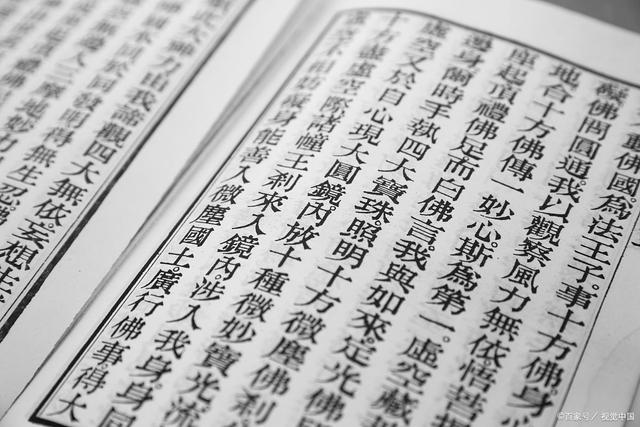 動佛國為法王子。事十方佛。身心
礙佛問圓通。我以觀察風力無依。悟菩提
地合十方佛傳一妙心。斯為第一。虛空藏
座起頂禮佛足。而白佛言。我與如來。定光佛
邊身爾時手執四大寶珠。照明十方微塵佛剎
虛空又於自心現大圓鏡。內放十種微妙寶光流
十方盡虛空際。諸幢王剎來入鏡內。涉入我身。身同
虛空不相妨礙。身能善入微塵國土。廣行佛事。得大
此大神力由我諦觀四大無依。妄想生滅
佛國本同於同發明得無生忍佛
無邊入三摩地妙力
©百家号／视觉中国